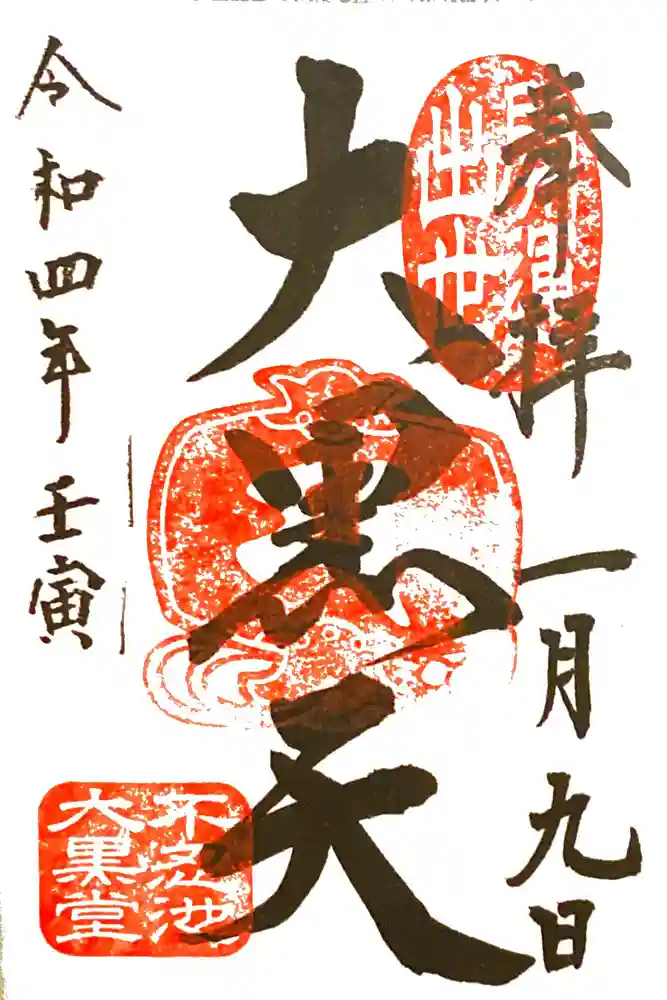 奉拝
一月九日
出世
大黒天
不忍池
大黒堂
令和四年壬寅